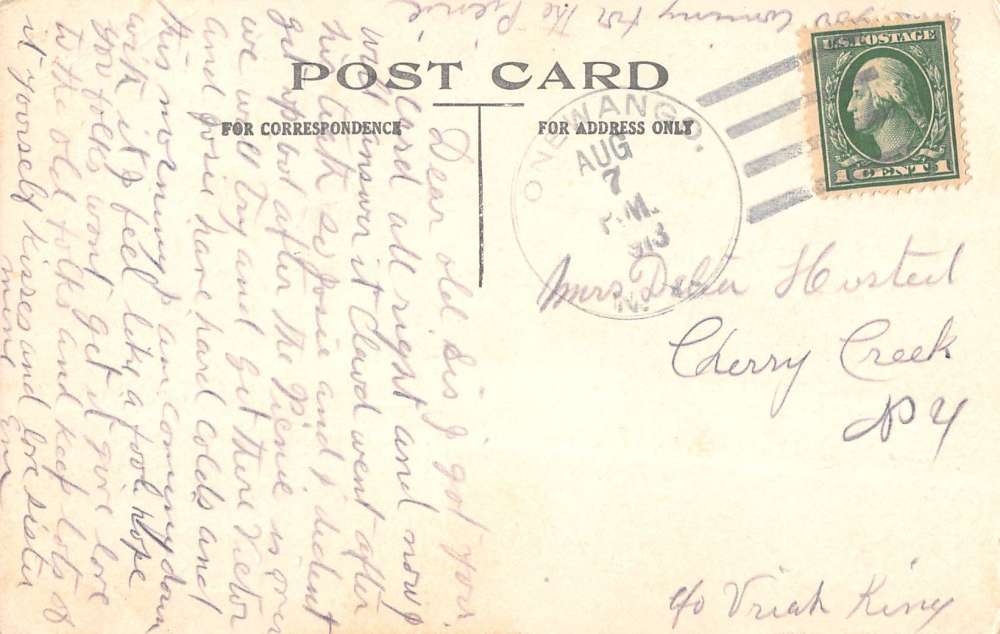 POST CARD
FOR CORRESPONDENCE
FOR ADDRESS ONLY
U.S. POSTAGE
1 CENT 1
AUG
7
P.M.
1913
N.
Mrs Delia Husted
Cherry Creek
N Y
c/o Uriah King
Dear old Sis I got your
card all right and now I
will answer it Claud went after
his
so Josie and I dident
get up but after the Picnic is over
we will try and get there Victor
and Josie have hard colds and
this morning I am coming down
with it I feel like a fool hope
you folks wont get it give love
to the old folks and keep lots of
it yourself kisses and love sister
you coming for the Picnic